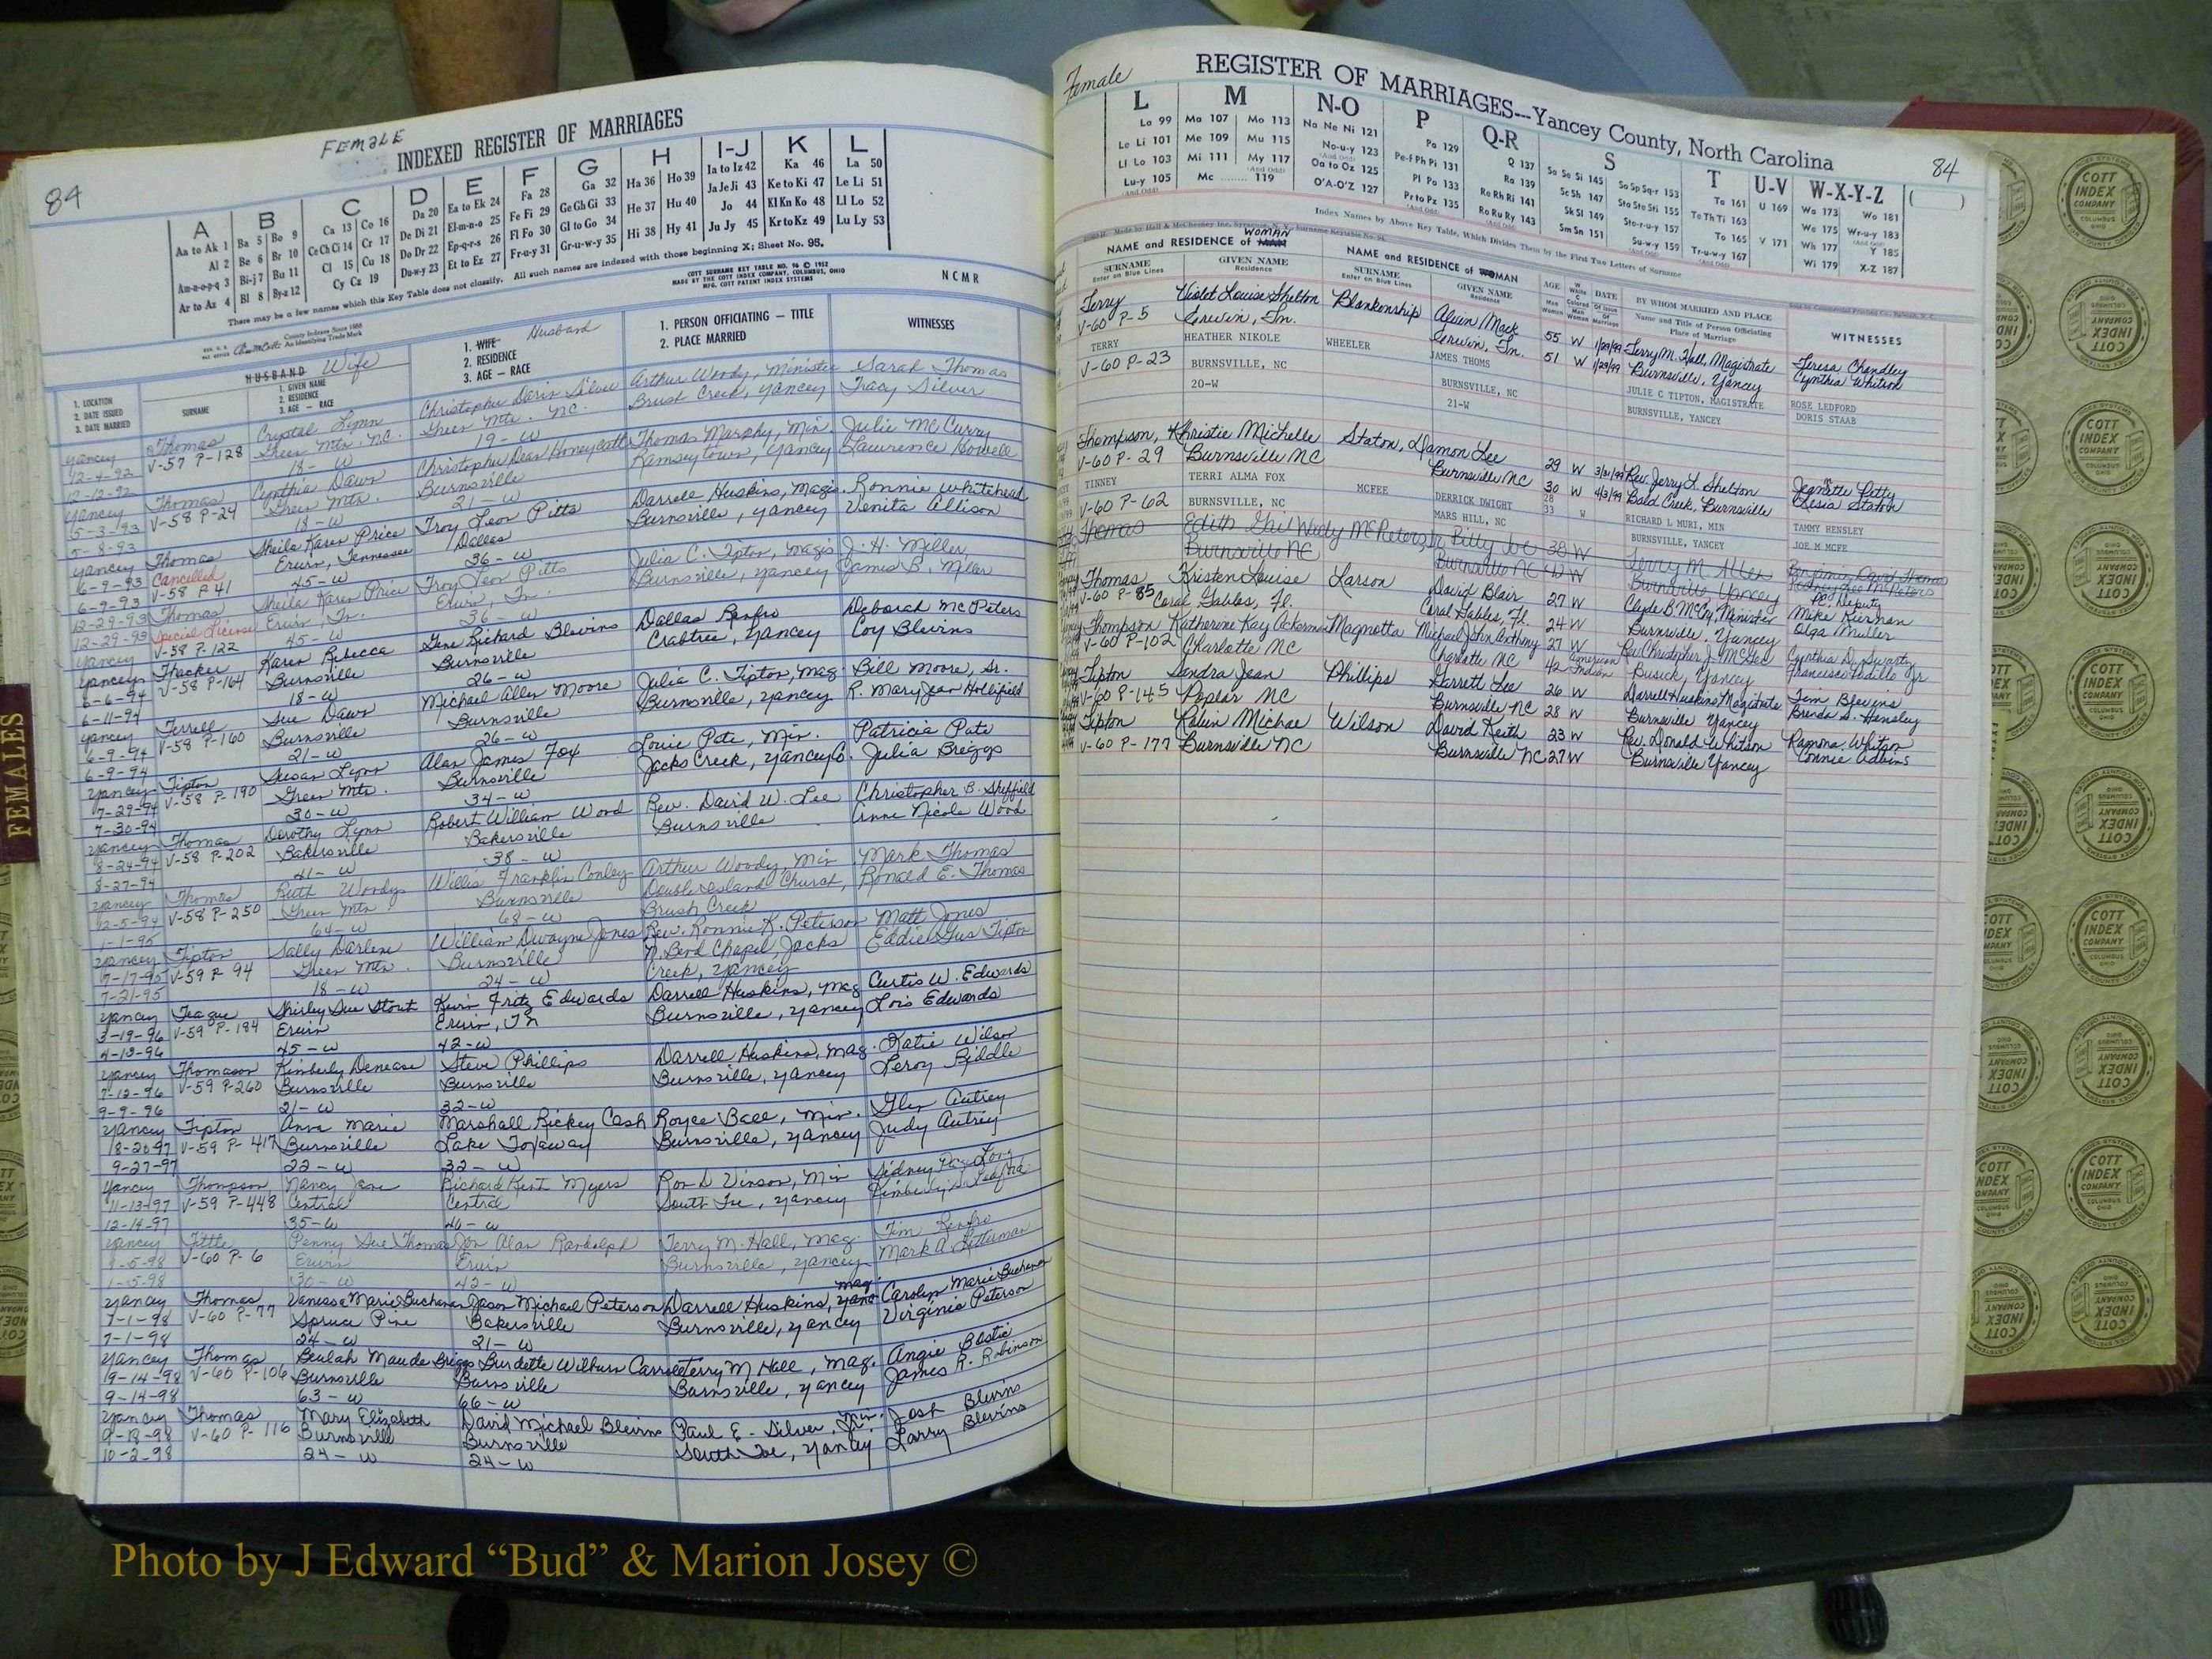 84
FEMALE
INDEXED REGISTER OF MARRIAGES
A B C D E F G H I-J K L
Aa to Ak 1 Ba 5 Bo 9 Ca 13 Co 16 Da 20 Ea to Ek 24 Fa 28 Ga 32 Ha 36 Ho 39 Ia to Iz 42 Ka 46 La 50
Al 2 Be 6 Br 10 Ce Ch Ci 14 Cr 17 De Di 21 El-m-n-o 25 Fe Fi 29 Ge Gh Gi 33 He 37 Hu 40 Ja Je Ji 43 Ke to Ki 47 Le Li 51
Am-n-o-p-q 3 Bi-j 7 Bu 11 Cl 15 Cu 18 Do Dr 22 Ep-q-r-s 26 Fl Fo 30 Gl to Go 34 Hi 38 Hy 41 Jo 44 Kl Kn Ko 48 Ll Lo 52
Ar to Az 4 Bl 8 By-z 12 Cy Cz 19 Du-w-y 23 Et to Ez 27 Fr-u-y 31 Gr-u-w-y 35 Ju Jy 45 Kr to Kz 49 Lu Ly 53
There may be a few names which this Key Table does not classify. All such names are indexed with those beginning X; Sheet No. 95.
COTT SURNAME KEY TABLE NO. 96 © 1952
MADE BY THE COTT INDEX COMPANY, COLUMBUS, OHIO
MFG. COTT PATENT INDEX SYSTEMS
NCMR
County Indexes Since 1888
An Identifying Trade Mark
1. LOCATION
2. DATE ISSUED
3. DATE MARRIED
SURNAME
HUSBAND Wife
1. GIVEN NAME
2. RESIDENCE
3. AGE — RACE
1. WIFE Husband
2. RESIDENCE
3. AGE — RACE
1. PERSON OFFICIATING — TITLE
2. PLACE MARRIED
WITNESSES
Yancey Thomas Crystal Lynn Christopher Darin Silver Arthur Woody, Minister Sarah Thomas
12-4-92 V-57 P-128 Green Mtn. NC. Green Mtn. NC. Brush Creek, Yancey Tracy Silver
12-12-92 18-W 19-W
Yancey Thomas Cynthia Dawn Christopher Dean Honeycutt Thomas Murphy, Min. Julie McCurry
5-3-93 V-58 P-24 Green Mtn. Burnsville Ramseytown, Yancey Laurence Howell
5-8-93 18-W 21-W
Yancey Thomas Sheila Karen Price Troy Leon Pitts Darrell Huskins, Magis. Ronnie Whitehead
6-9-93 Cancelled Erwin, Tennessee Dallas Burnsville, Yancey Venita Allison
6-9-93 V-58 P-41 45-W 36-W
12-29-93 Thomas Sheila Karen Price Troy Leon Pitts Julia C. Tipton, Magis. J. H. Miller
12-29-93 Special License Erwin, Tn. Erwin, Tn. Burnsville, Yancey James B. Miller
Yancey V-58 P-122 45-W 36-W
Yancey Thacker Karen Rebecca Gene Richard Blevins Dallas Renfro Deborah McPeters
6-6-94 V-58 P-164 Burnsville Burnsville Crabtree, Yancey Coy Blevins
6-11-94 18-W 26-W
Yancey Terrell Sue Dawn Michael Allen Moore Julia C. Tipton, Mag Bill Moore, Sr.
6-9-94 V-58 P-160 Burnsville Burnsville Burnsville, Yancey R. Mary Jean Hollifield
6-9-94 21-W 26-W
Yancey Tipton Susan Lynn Alan James Fox Louie Pate, Min. Patricia Pate
7-29-94 V-58 P-190 Green Mtn. Burnsville Jacks Creek, Yancey Co. Julia Briggs
7-30-94 30-W 34-W
Yancey Thomas Dorothy Lynn Robert William Wood Rev. David W. Lee Christopher B. Sheffield
8-24-94 V-58 P-202 Bakersville Bakersville Burnsville Anne Nicole Wood
8-27-94 41-W 38-W
Yancey Thomas Ruth Woody Willis Franklin Conley Arthur Woody, Min Mark Thomas
12-5-94 V-58 P-250 Green Mtn. Burnsville Double Island Church, Ronald E. Thomas
1-1-95 64-W 68-W Brush Creek
Yancey Tipton Sally Darlene William Dwayne Jones Rev. Ronnie K. Peterson Matt Jones
7-17-95 V-59 P-94 Green Mtn. Burnsville N. Bend Chapel, Jacks Eddie Gus Tipton
7-21-95 18-W 24-W Creek, Yancey
Yancey Teague Shirley Sue Stout Kevin Fritz Edwards Darrell Huskins, Mag Curtis W. Edwards
3-19-96 V-59 P-184 Erwin Erwin, Tn Burnsville, Yancey Lois Edwards
4-12-96 45-W 42-W
Yancey Thomason Kimberly Denease Steve Phillips Darrell Huskins, Mag. Katie Wilson
7-12-96 V-59 P-260 Burnsville Burnsville Burnsville, Yancey Leroy Riddle
9-9-96 21-W 32-W
Yancey Tipton Anna Marie Marshall Rickey Cash Royce Ball, Min. Glen Autrey
18-20-97 V-59 P-417 Burnsville Lake Toxaway Burnsville, Yancey Judy Autrey
9-27-97 22-W 32-W
Yancey Thompson Nancy Jane Richard Kent Myers Ron D Vinson, Min
11-13-97 V-59 P-448 Central Central South Toe, Yancey
12-14-97 35-W 40-W
Yancey Tittle Penny Sue Thomas Jon Alan Randolph Terry M. Hall, Mag. Tim Renfro
1-5-98 V-60 P-6 Erwin Erwin Burnsville, Yancey Mark A Letterman
1-5-98 30-W 42-W
Yancey Thomas Vanessa Marie Buchanan Jason Michael Peterson Darrell Huskins, Mag. Carolyn Marie Buchanan
7-1-98 V-60 P-77 Spruce Pine Bakersville Burnsville, Yancey Virginia Peterson
7-1-98 24-W 21-W
Yancey Thomas Beulah Maude Briggs Burdette Wilburn Carroll Terry M Hall, Mag. Angie Bostic
9-14-98 V-60 P-106 Burnsville Burnsville Burnsville, Yancey James R. Robinson
9-14-98 63-W 66-W
Yancey Thomas Mary Elizabeth David Michael Blevins Paul E. Silver, Min. Josh Blevins
9-18-98 V-60 P-116 Burnsville Burnsville South Toe, Yancey Larry Blevins
10-2-98 24-W 24-W
Female
REGISTER OF MARRIAGES---Yancey County, North Carolina
84
L M N-O P Q-R S T U-V W-X-Y-Z
La 99 Ma 107 Mo 113 Na Ne Ni 121 Pa 129 Q 137 Sa Se Si 145 Sa Sp Sq-r 153 Ta 161 U 169 Wa 173 Wo 181
Le Li 101 Me 109 Mu 115 No-u-y 123 Pe-f Ph Pi 131 Ra 139 Sc Sh 147 Sta Ste Sti 155 Te Th Ti 163 We 175 Wr-u-y 183
Ll Lo 103 Mi 111 My 117 Oa to Oz 125 Pl Po 133 Re Rh Ri 141 Sk Sl 149 Sto-r-u-y 157 To 165 V 171 Wh 177 Y 185
Lu-y 105 Mc 119 O'A-O'Z 127 Pr to Pz 135 Ro Ru Ry 143 Sm Sn 151 Su-w-y 159 Tr-u-w-y 167 Wi 179 X-Z 187
Index Names by Above Key Table, Which Divides Them by the First Two Letters of Surname
NAME and RESIDENCE of MAN WOMAN
SURNAME
Enter on Blue Lines
GIVEN NAME
Residence
NAME and RESIDENCE of WOMAN
SURNAME
Enter on Blue Lines
GIVEN NAME
Residence
AGE
Man
Woman
W White
C Colored
DATE
Of Issue
Of Marriage
BY WHOM MARRIED AND PLACE
Name and Title of Person Officiating
Place of Marriage
WITNESSES
Terry Violet Louise Shelton Blankenship Alvin Mack 55 W 1/29/99 Terry M. Hall, Magistrate Teresa Chandley
V-60 P-5 Erwin, Tn. Erwin, Tn. 51 W 1/29/99 Burnsville, Yancey Cynthia Whitson
TERRY HEATHER NIKOLE WHEELER JAMES THOMS JULIE C TIPTON, MAGISTRATE ROSE LEDFORD
V-60 P-23 BURNSVILLE, NC BURNSVILLE, NC BURNSVILLE, YANCEY DORIS STAAB
20-W 21-W
Thompson, Khristie Michelle Staton, Damon Lee 29 W 3/31/99 Rev. Jerry L. Shelton Jeanette Petty
V-60 P-29 Burnsville NC Burnsville NC 30 W 4/3/99 Bald Creek, Burnsville Elesia Staton
TINNEY TERRI ALMA FOX MCFEE DERRICK DWIGHT 28 W RICHARD L MURI, MIN TAMMY HENSLEY
V-60 P-62 BURNSVILLE, NC MARS HILL, NC 33 BURNSVILLE, YANCEY JOE M MCFE
Thomas Edith Gail Woody McPeters, Jr. Billy Joe 38 W Terry M Allen Benjamin David Thomas
Burnsville NC Burnsville NC 42 W Burnsville, Yancey
Thomas Kristen Louise Larson David Blair 27 W Clyde B. McCoy, Minister Mike Kiernan
V-60 P-85 Coral Gables, Fl. Coral Gables, Fl. 24 W Burnsville, Yancey Olga Muller
Thompson Katherine Kay Ackerman Magnotta Michael John Anthony 27 W Rev Christopher J. McGee Cynthia D. Swartz
V-60 P-102 Charlotte NC Charlotte NC 42 American Indian Busick, Yancey Francisco Padilla Jr
Tipton Sandra Jean Phillips Garrett Lee 26 W Darrell Huskins Magistrate Tim Blevins
V-60 P-145 Poplar NC Burnsville NC 28 W Burnsville Yancey Brenda S. Hensley
Tipton Kalun Michae Wilson David Keith 23 W Rev. Donald Whitson Ramona Whitson
V-60 P-177 Burnsville NC Burnsville NC 27 W Burnsville Yancey Connie Adkins
FEMALES
COTT INDEX COMPANY
COLUMBUS OHIO
Photo by J Edward “Bud” & Marion Josey ©